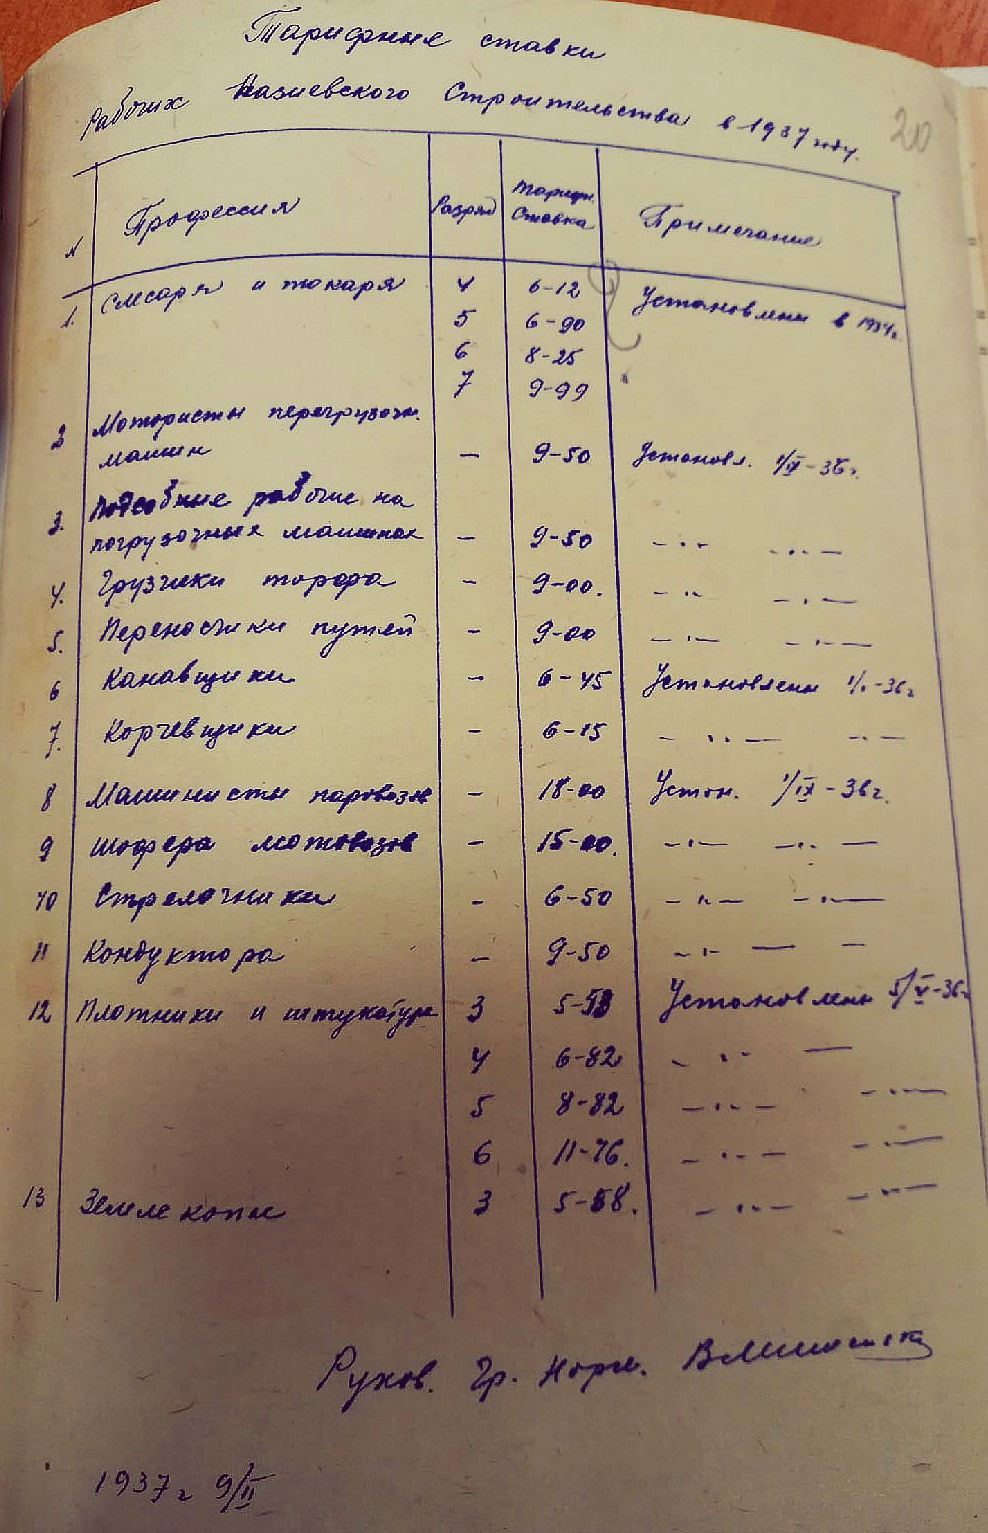 Тарифные ставки
Рабочих Назиевского Строительства в 1937 году.
20
N Профессия Разряд Тарифн. Ставка Примечание
1. Слесаря и токаря 4 6-12 Установлены в 1934г.
5 6-90
6 8-25
7 9-99
2 Мотористы перегрузочн.
машин - 9-50 Установл. 1/IX-36г.
3. Подсобные рабочие на
погрузочных машинах - 9-50 -"- -"-
4. Грузчики торфа - 9-00. -"- -"-
5. Переносчики путей - 9-00 -"- -"-
6 Канавщики - 6-45 Установлены -36г
7. Корчевщики - 6-15 -"- -"-
8 Машинисты паровозов - 18-00 Устан. 1/IX-36г.
9 Шофера мотовозов - 15-00. -"- -"-
10 Стрелочники - 6-50 -"- -"-
11 Кондуктора - 9-50 -"- -
12 Плотники и штукатуры 3 5-58 Установлены 5/V-36г
4 6-82 -"- -
5 8-82 -"- -"-
6 11-76. -"- -"-
13 Землекопы 3 5-58. -"- -"-
Руков. Гр. Норм.
1937г 9/II